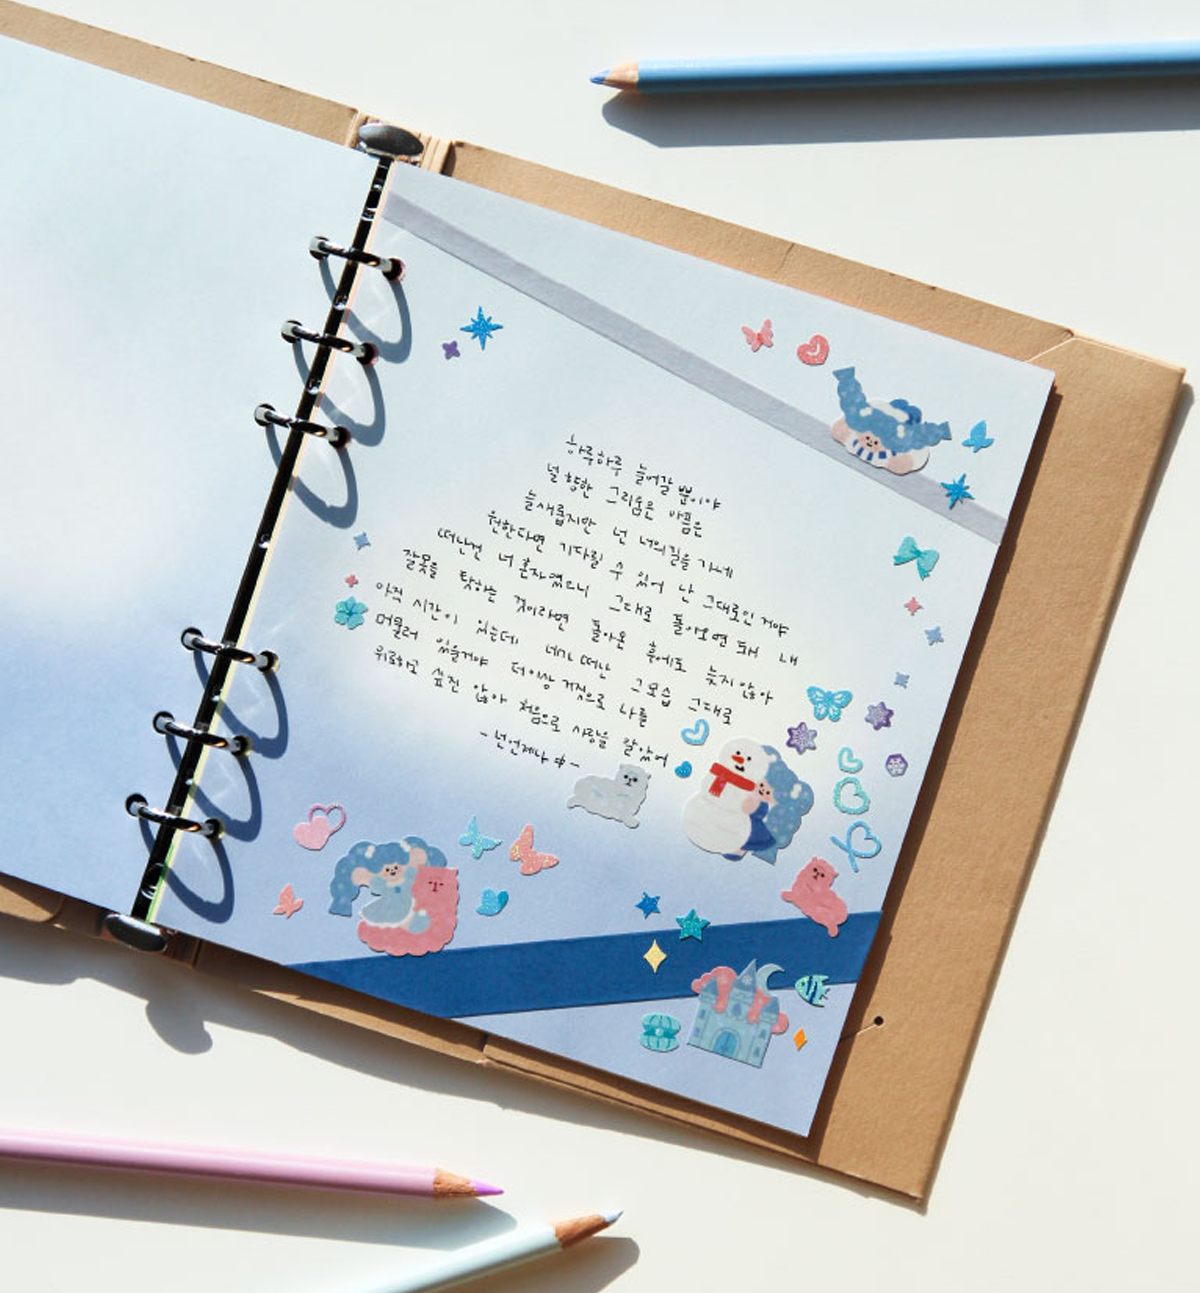 하루하루 늘어갈 뿐이야
널 향한 그리움은 아픔은
늘 새롭지만 넌 너의 길을 가네
원한다면 기다릴 수 있어 난 그대로인거야
떠난건 너 혼자였으니 그대로 돌아오면 돼 내
잘못을 탓하는 것이라면 돌아온 후에도 늦지 않아
아직 시간이 있는데 네가 떠난 그 모습 그대로
머물러 있을거야 더이상 거짓으로 나를
위로하고 싶진 않아 처음으로 사랑을 알았어
- 넌 언제나 中 -